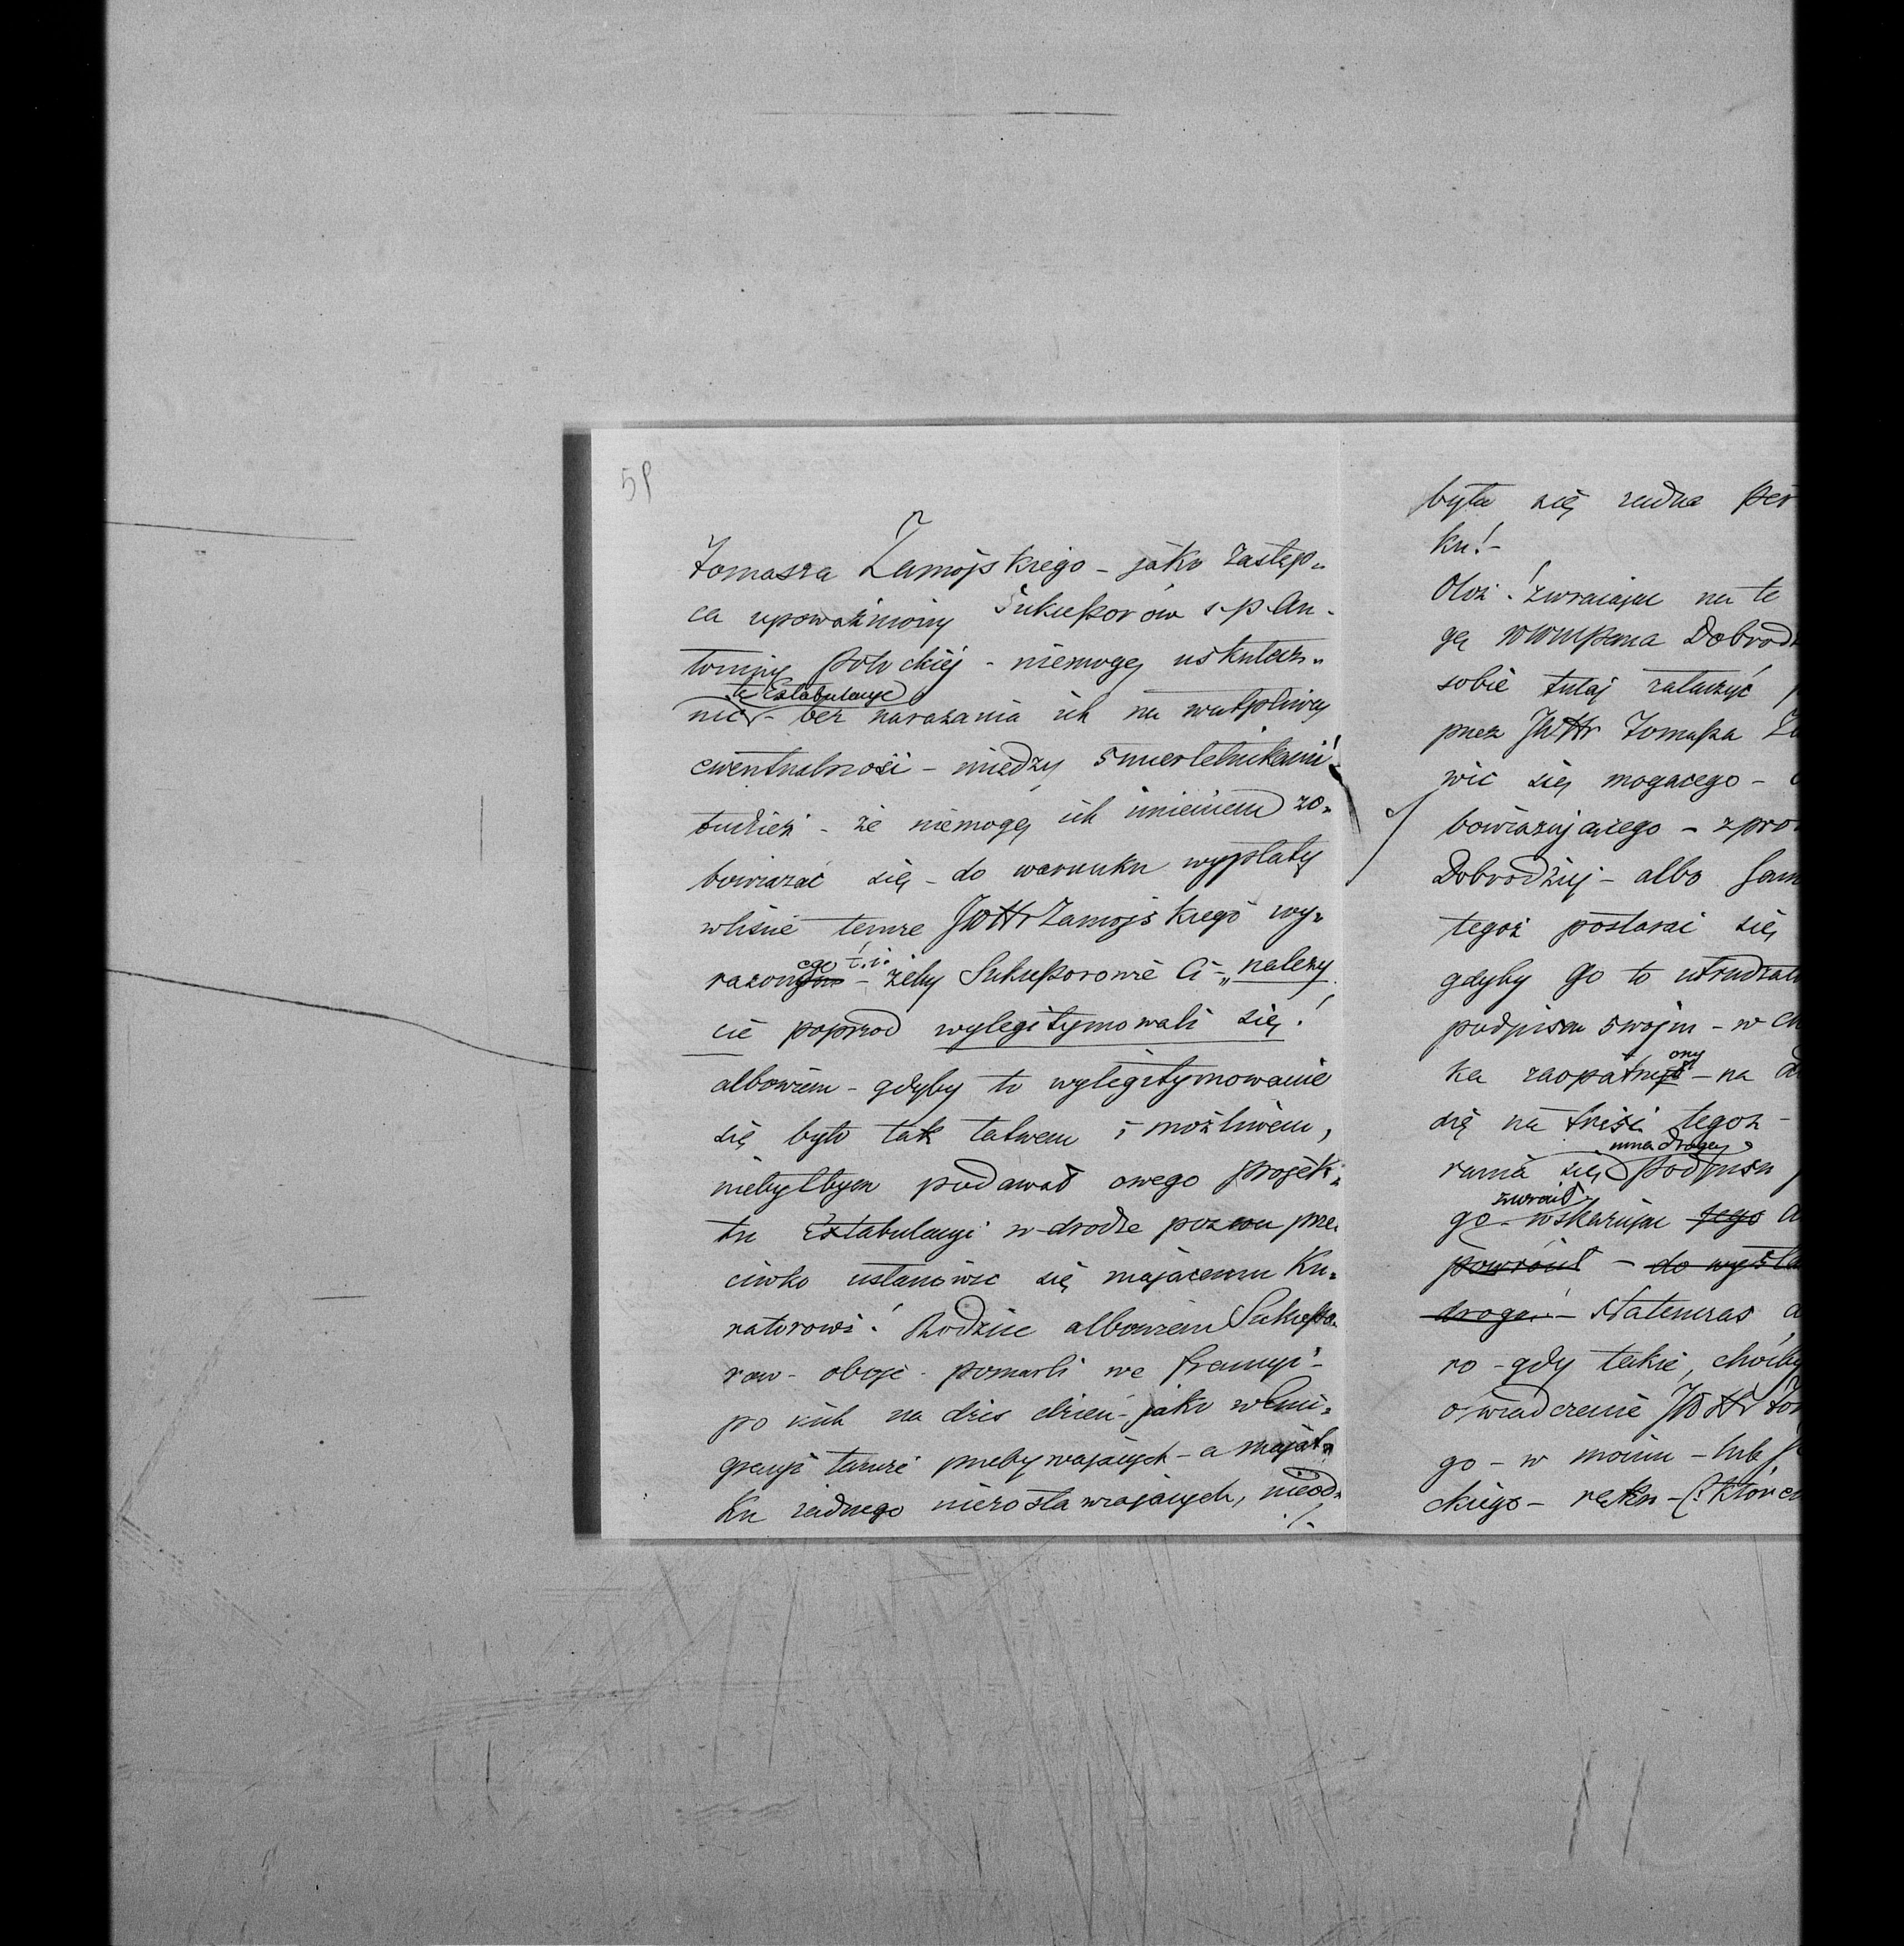 58
Tomasza Zamojskiego – jako zastęp„
ca upoważniony Sukceßorów s. p. An-
toniny Potockiej – niemogę uskutecz„
tę Extabulacyę
nić – bez narażania ich na wątpliwą
ewentualność – między śmiertelnikami!
tudzież – że niemogę ich imieniem zo„
bowiązać się – do warunku wypłaty
wliście temże JWHr Zamojskiego wy„
ego t. i.
rażon – żeby Sukceßorowie Ci – „należy
cie poprzod wylegitymowali się!
albowiem – gdyby to wylegitymowanie
się było tak łatwem i możliwem,
niebyłbym podawał owego projek„
tu Extabulacyi w drodze pozwu prze
ciwko ustanowić się mającemu Ku„
ratorowi! Rodzice albowiem Sukceßo
row – oboje – pomarli we Francyi –
po nich na dziś dzień – jako w Emi„
gracyi tamże przebywających – a mająt„
ku żadnego niezostawiających, nieod„
./.
była się żadna per
ku! –
Otoż! zwracając na te
gę WWMPana Dobrod
sobie tutaj załączyć
przez JWHr Tomaßa Za
wić się mogącego –
bowiązującego – z pro
Dobrodziej – albo sam
tegoż postarać się
gdyby Go to utrudzało
podpisem swojm – w
ka zaopatrz
ony
– na
się na treści tegoż –
inną drogą
rania się podpisu
zwrócił
go – wskazując jego
powrócił – do wysła
drogą. – Natenczas
ro – gdy takie, choćby
oświadczenie JWHr Tom
go – w moim – lub
ckiego – ręku – (: Którem